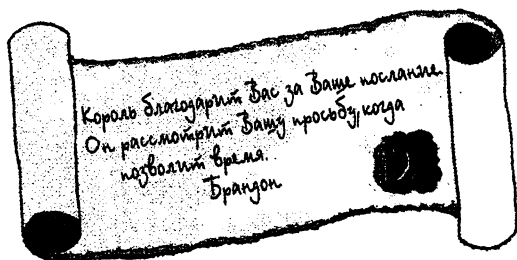 Король благодарит Вас за Ваше послание.
Он рассмотрит Вашу просьбу, когда
позволит время.
Брандон